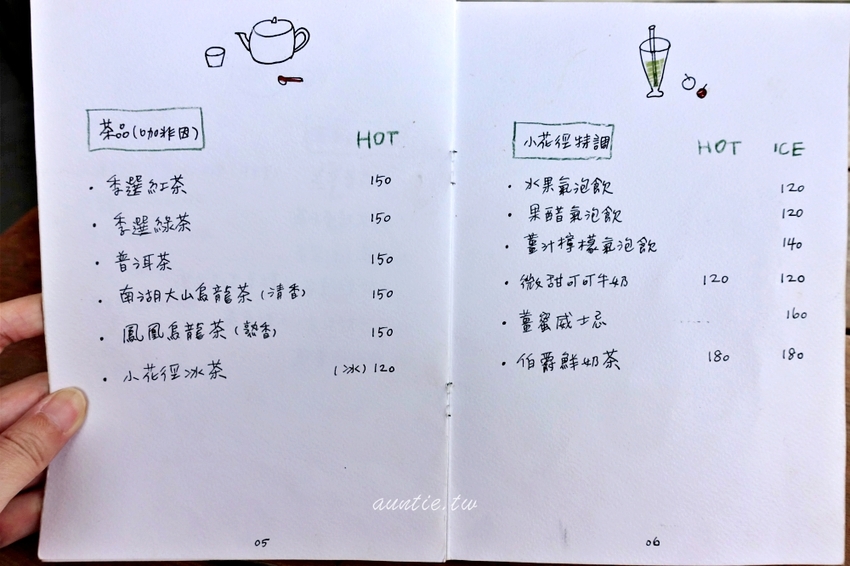 茶品(咖啡因)
HOT
• 季選紅茶 150
• 季選綠茶 150
• 普洱茶 150
• 南湖大山烏龍茶(清香) 150
• 鳳凰烏龍茶(熟香) 150
• 小花徑冰茶 (冰) 120
05
小花徑特調
HOT ICE
• 水果氣泡飲 120
• 果醋氣泡飲 120
• 薑汁檸檬氣泡飲 140
• 微甜可可牛奶 120 120
• 薑蜜威士忌 ..... 160
• 伯爵鮮奶茶 180 180
06
auntie.tw